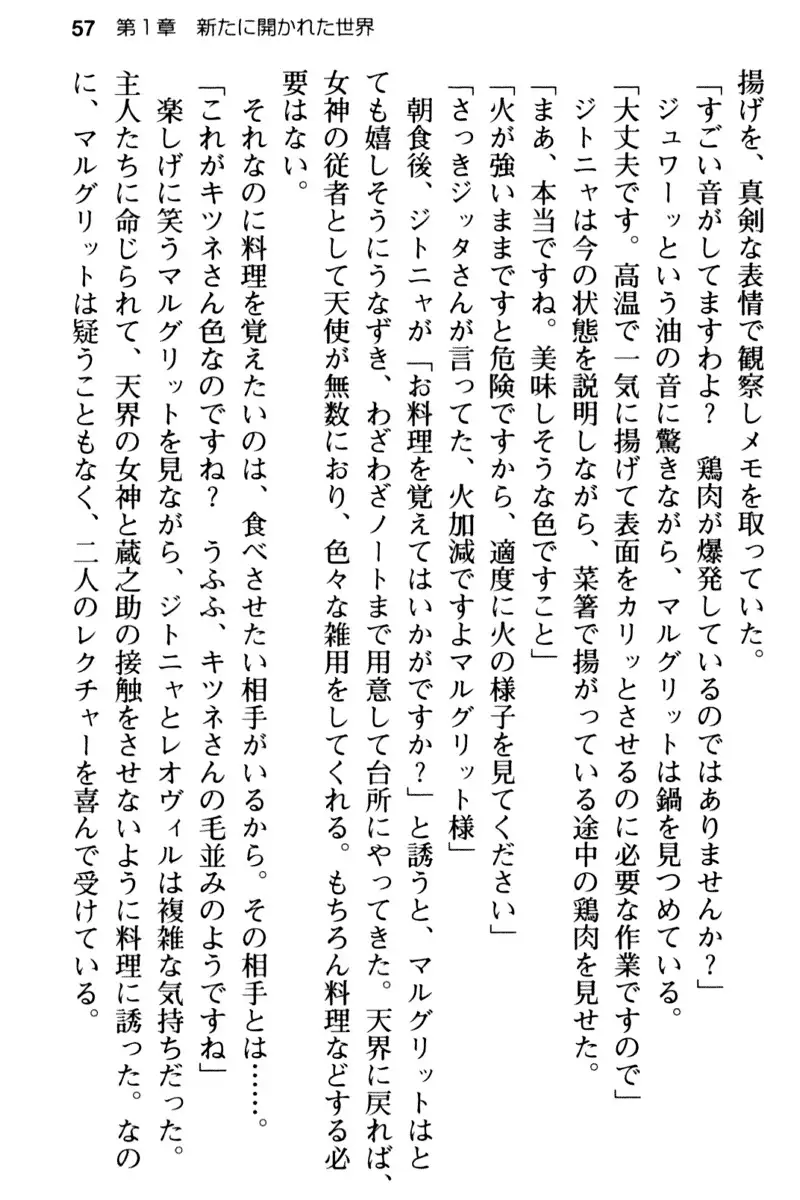 57 第1章 新たに開かれた世界
揚げを、真剣な表情で観察しメモを取っていた。
「すごい音がしてますわよ？　鶏肉が爆発しているのではありませんか？」
ジュワーッという油の音に驚きながら、マルグリットは鍋を見つめている。
「大丈夫です。高温で一気に揚げて表面をカリッとさせるのに必要な作業ですので」
ジトニャは今の状態を説明しながら、菜箸で揚がっている途中の鶏肉を見せた。
「まあ、本当ですね。美味しそうな色ですこと」
「火が強いままですと危険ですから、適度に火の様子を見てください」
「さっきジッタさんが言ってた、火加減ですよマルグリット様」
朝食後、ジトニャが「お料理を覚えてはいかがですか？」と誘うと、マルグリットはと
ても嬉しそうにうなずき、わざわざノートまで用意して台所にやってきた。天界に戻れば、
女神の従者として天使が無数におり、色々な雑用をしてくれる。もちろん料理などする必
要はない。
それなのに料理を覚えたいのは、食べさせたい相手がいるから。その相手とは……。
「これがキツネさん色なのですね？　うふふ、キツネさんの毛並みのようですね」
楽しげに笑うマルグリットを見ながら、ジトニャとレオヴィルは複雑な気持ちだった。
主人たちに命じられて、天界の女神と蔵之助の接触をさせないように料理に誘った。なの
に、マルグリットは疑うこともなく、二人のレクチャーを喜んで受けている。